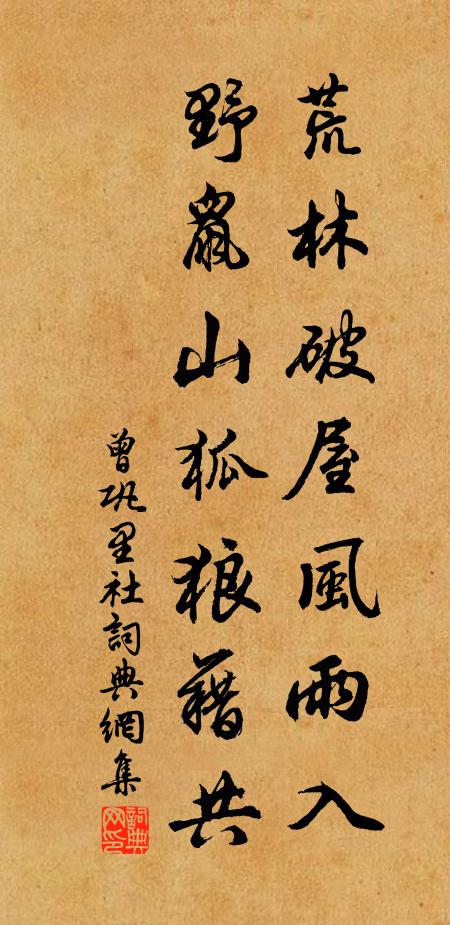 荒林破屋風雨入
野鼠山狐狼藉共
曾巩里社詞典網集
詞典网印